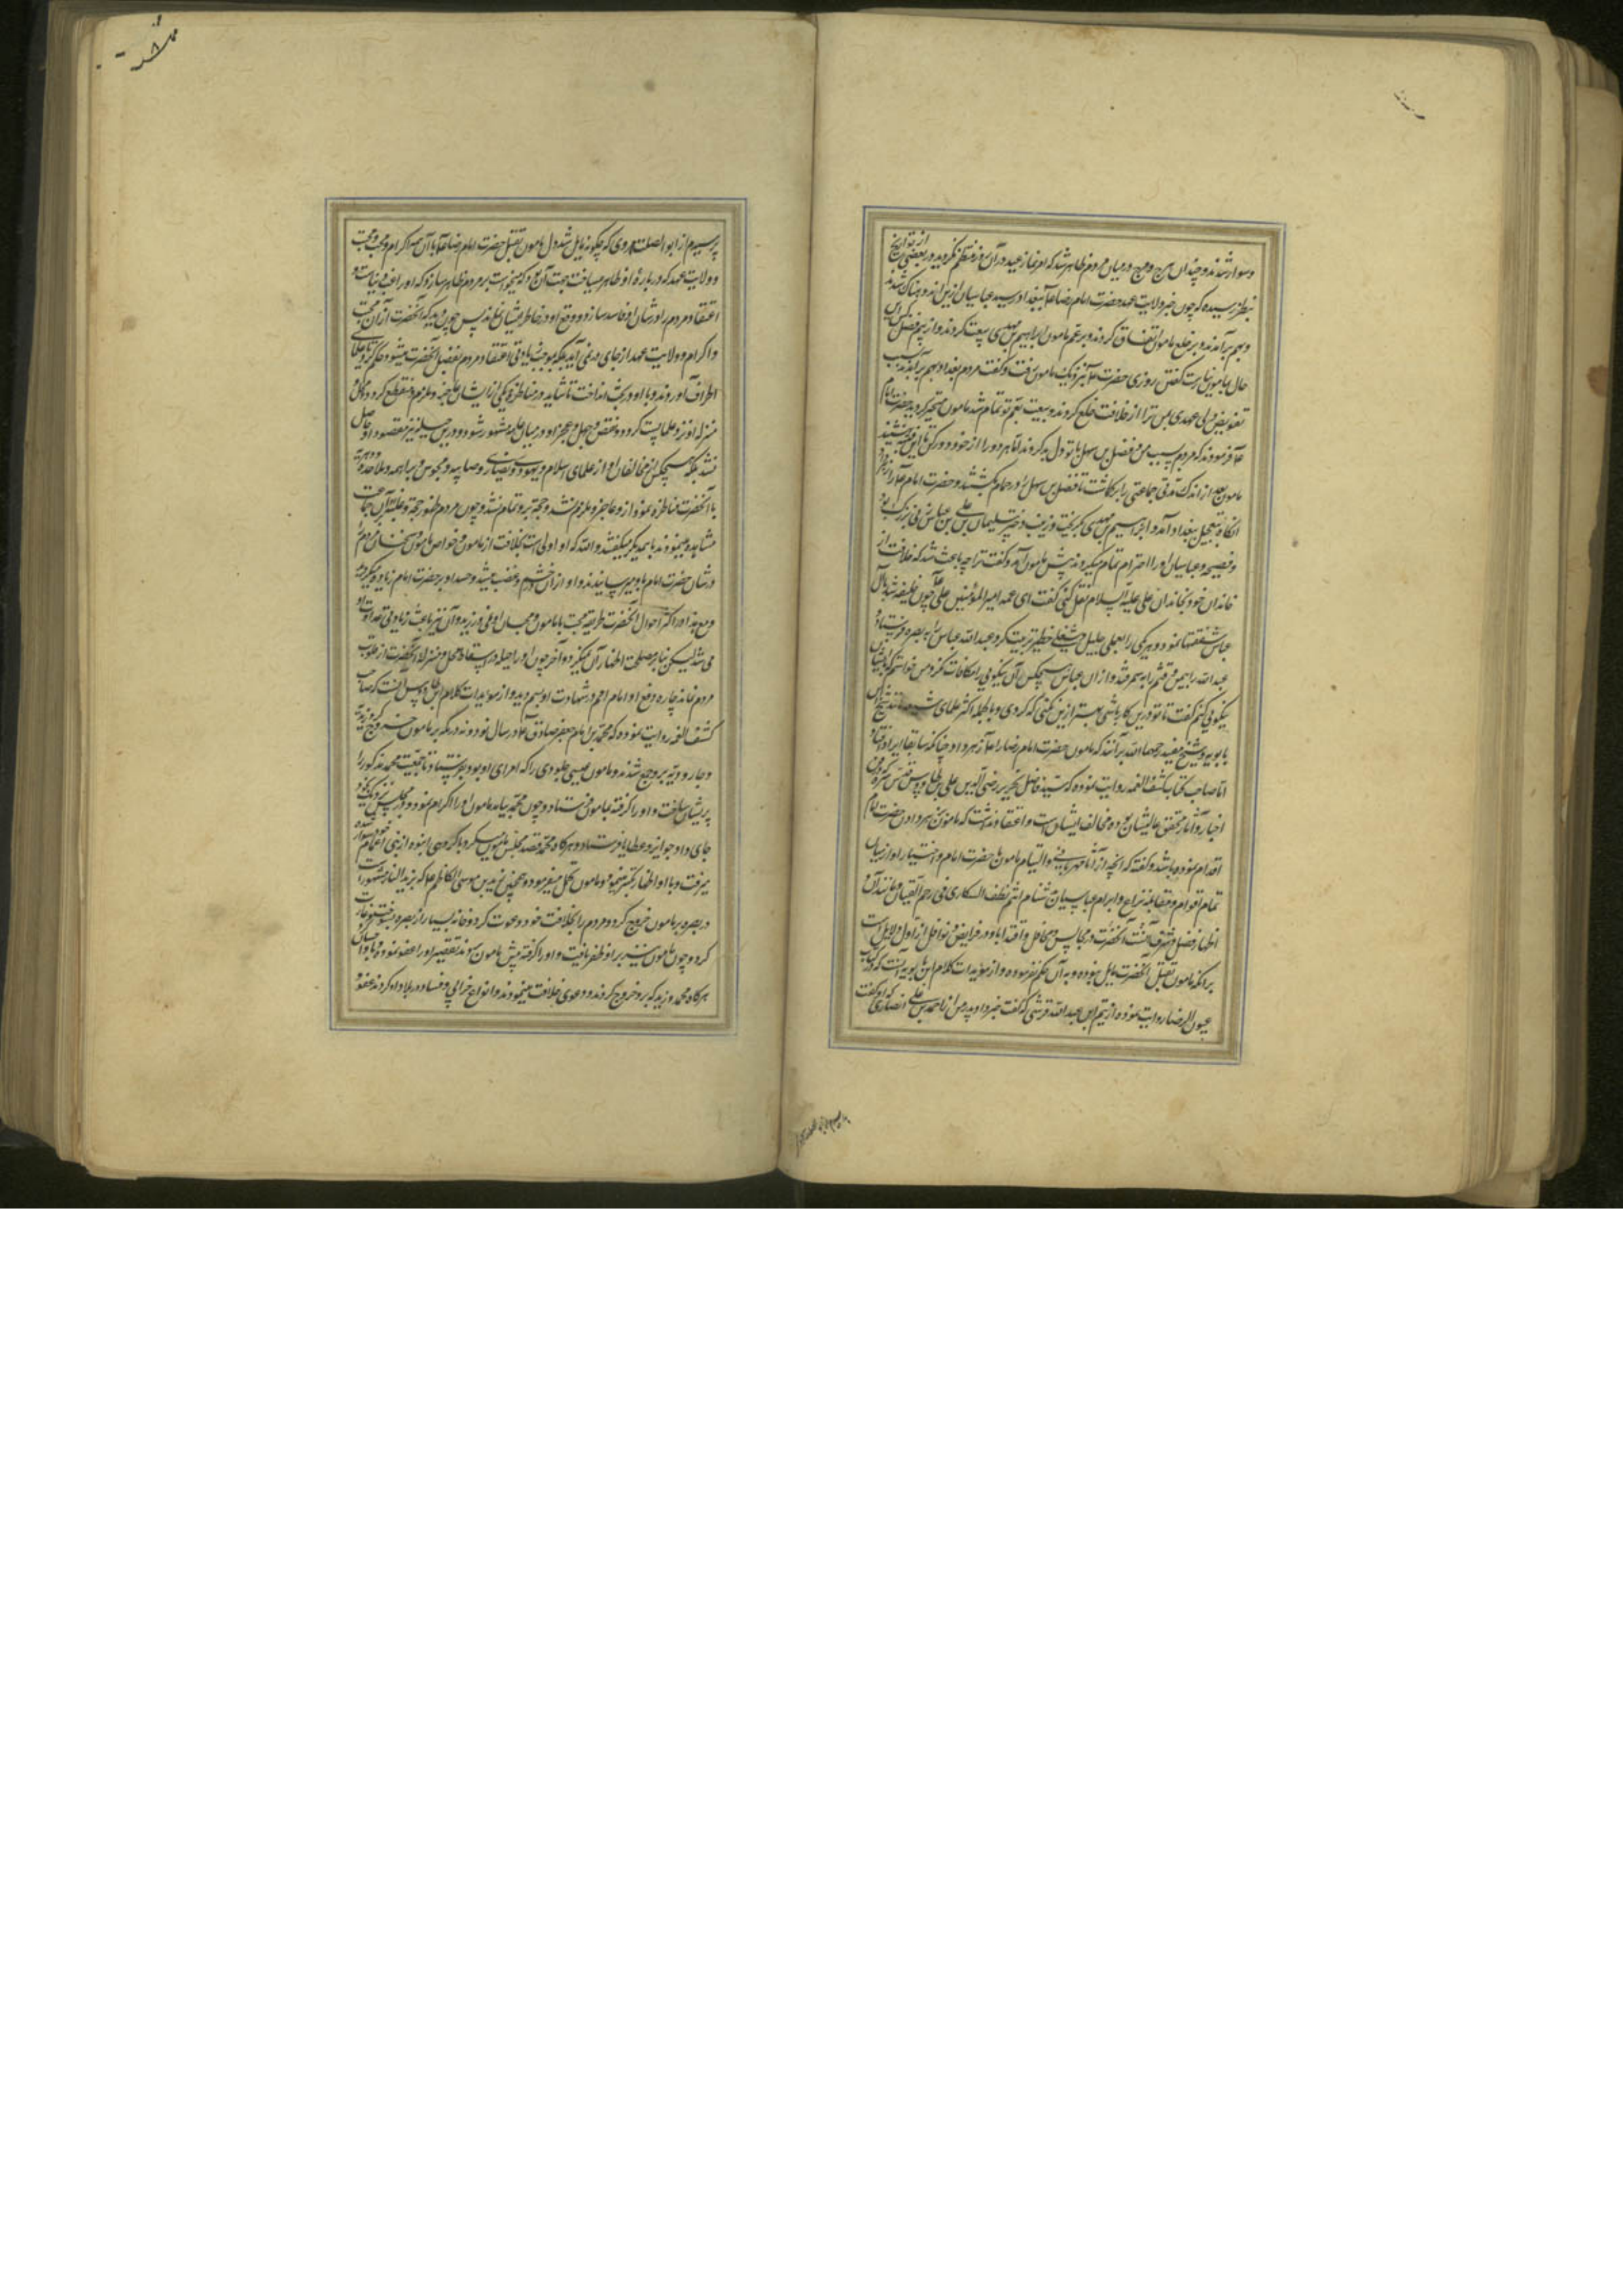 وسوار شدند و چندان هرج و مرج در میان مردم ظاهر شد که امر نماز عید در آن روز منتظم نگردید و در بعضی از تواریخ
بنظر رسیده که چون خبر ولایت عهد حضرت امام رضا ببغداد رسید عباسیان ازین اندوهناک شدند
و بهم برآمدند و بر خلع مامون اتفاق کردند و بر عم مامون ابراهیم بن مهدی بیعت کردند و از بیم فضل کس این
حال بمامون نیارست گفتن روزی حضرت نزدیک مامون رفت و گفت مردم بغداد بهم برآمدند بسبب
تفویض ولی عهدی بمن ترا از خلافت خلع کردند و بیعت بعم تو تمام شد مامون متحیر گردید حضرت امام
فرمودند که مردم بسبب من و فضل بن سهل با تو دل بد کردند ما هر دو را از خود دور کن تا این فتنه بنشیند
مامون بعد از اندک مدتی جماعتی را برگماشت تا فضل بن سهل را در حمام بکشتند و حضرت امام را زهر داد
آنگاه بتعجیل ببغداد آمد و ابراهیم بن مهدی بگریخت و زینب دختر سلیمان بن علی بن عباس زنی بزرگ بود
و فصیحه و عباسیان او را احترام تمام میکردند پیش مامون آمد و گفت ترا چه باعث شد که خلافت از
خاندان خود بخاندان علی علیه السلام نقل کنی گفت ای عمه امیر المؤمنین علی چون خلیفه شد با آل
عباس شفقتها نمود و هر یکی را بعملی جلیل و شغلی خطیر تربیت کرد عبد الله عباس را به بصره فرستاد و
عبید الله را بیمن و قثم را به سمرقند و از آل عباس هیچکس آن نیکویی را مکافات نکرد من خواستم که با ایشان
نیکویی کنم گفت تا تو درین کار باشی بهتر ازین کنی که کردی و بالجمله اکثر علمای شیعه مانند شیخ ابن
بابویه و شیخ مفید رحمهما الله برآنند که مامون حضرت امام رضا را زهر داد چنانکه سابقا ایراد افتاد
اما صاحب کتاب کشف الغمه روایت نموده که سید فاضل نحریر رضی الدین علی بن طاوس قدس سره که در فن
اخبار و آثار محقق عالیشان بوده مخالف ایشان است و اعتقاد نداشت که مامون زهر دادن حضرت امام
اقدام نموده باشد و گفته که آنچه از آثار مهربانی و التیام مامون با حضرت امام و اختیار او از میان
تمام اقوام و مقابله نزاع و ابرام عباسیان شنام اثم نطف السکاری فی رحم القیان و مانند آن و
اظهار فضل و شرف آنحضرت در مجالس و محافل و اقتدا باو در فرایض و نوافل از ادل دلایل است
برانکه مامون بقتل آنحضرت مایل نبوده و به آن حکم نفرموده و از مؤیدات کلام ابن بابویه آنست که در کتاب
عیون الرضا روایت نموده از تمیم ابن عبد الله قرشی که گفت خبر داد پدر من از احمد بن علی انصاری که او گفت
پرسیدم از ابو الصلت هروی که چگونه مایل شد دل مامون بقتل حضرت امام رضا با آن همه اکرام و محبت
و ولایت عهد که درباره او ظاهر میساخت جهت آن بود که میخواست بر مردم ظاهر سازد که او راغب دنیاست و
اعتقاد مردم را در شان او فاسد سازد و وقع او در خاطر ایشان نماند پس چون دید که آنحضرت از آن محبت
و اکرام و ولایت عهد از جای در نمی آید بلکه موجب زیادتی اعتقاد مردم بفضل آنحضرت میشود حکم کرد تا علمای
اطراف آوردند و با او در بحث انداخت تا شاید در مناظره یکی از ایشان علیه او ملزم و منقطع گردد و محل و
منزله او نزد علما پست گردد و نقص و جهل و عجز او در میان عامه مشهور شود و درین حیله نیز مقصود او حاصل
نشد بلکه هیچکس از مخالفان او از علمای اسلام و یهود و نصاری و صابیه و مجوس و براهمه و ملاحده و دهریه
با آنحضرت مناظره ننمود الا او عاجز و ملزم نشد و حجت برو تمام نشد و چون مردم ظهور حجت و غلبه او بر آن جماعت
مشاهده مینمودند با همدیگر میگفتند و الله که او اولی است بخلافت از مامون و خواص مامون سخنان مردم را
در شان حضرت امام باو میرسانیدند و او از آن خشم و غضب میشد و حسد او بر حضرت امام زیاده میگردید
و مع هذا در اکثر احوال آنحضرت طریقه محبت با مامون و محبان او نمی ورزید و آن نیز باعث زیادتی عداوت او
می شد لیکن بنا بر مصلحت اظهار آن نمیکرد و آخر چون او را حیله در اسقاط محل و منزلت آنحضرت از قلوب
مردم نماند چاره دفع او امام اهم در شهادت او بسم دید و از مؤیدات کلام ابن طاوس آنست که صاحب
کشف الغمه روایت نموده که محمد بن امام جعفر صادق در سال نود و نه در مکه بر مامون خروج کرد و زیدیه
و جارودیه برو جمع شدند و مامون عیسی جلودی را که از امرای او بود بفرستاد تا جمعیت محمد مذکور را
پریشان ساخت و او را گرفته بمامون فرستاد و چون محمد بیامد مامون او را اکرام نمود و در مجلس نزدیک خود
جای داد و جوایز و عطایا فرستاد و هرگاه محمد قصد مجلس مامون میکرد با گروهی انبوه از بنی اعمام خود سوار شده
میرفت و با او اظهار تکبر مینمود و مامون تحمل میفرمود و همچنین زید بن موسی الکاظم که بزید النار مشهور است
در بصره بر مامون خروج کرد و مردم را بخلافت خود دعوت کرد و خانه بسیار از بصره بسوخت و غارت
کرد و چون مامون نیز بر او ظفر یافت و او را گرفته پیش مامون بردند تقصیر او را عفو نمود و با او احسان
هرگاه محمد و زید که برو خروج کردند و دعوی خلافت مینمودند و انواع خرابی و فساد در بلاد او کردند عفو